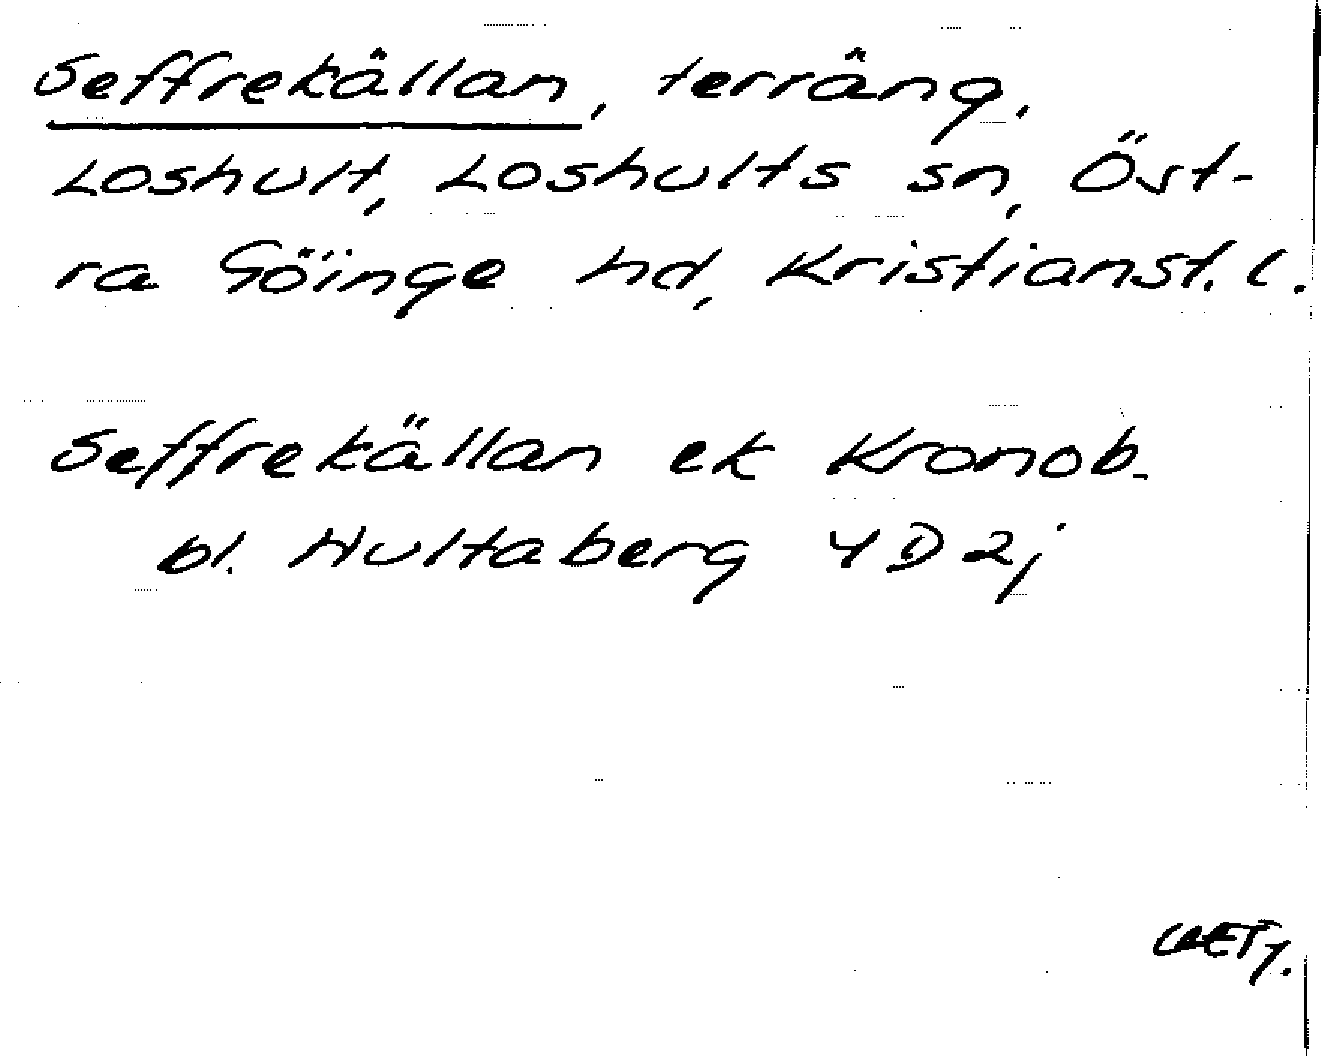 Seffrekällan, terräng,
Loshult, Loshults sn, Öst-
ra Göinge hd, Kristianst. l.
Seffrekällan ek Kronob.
bl. Hultaberg 4D2j